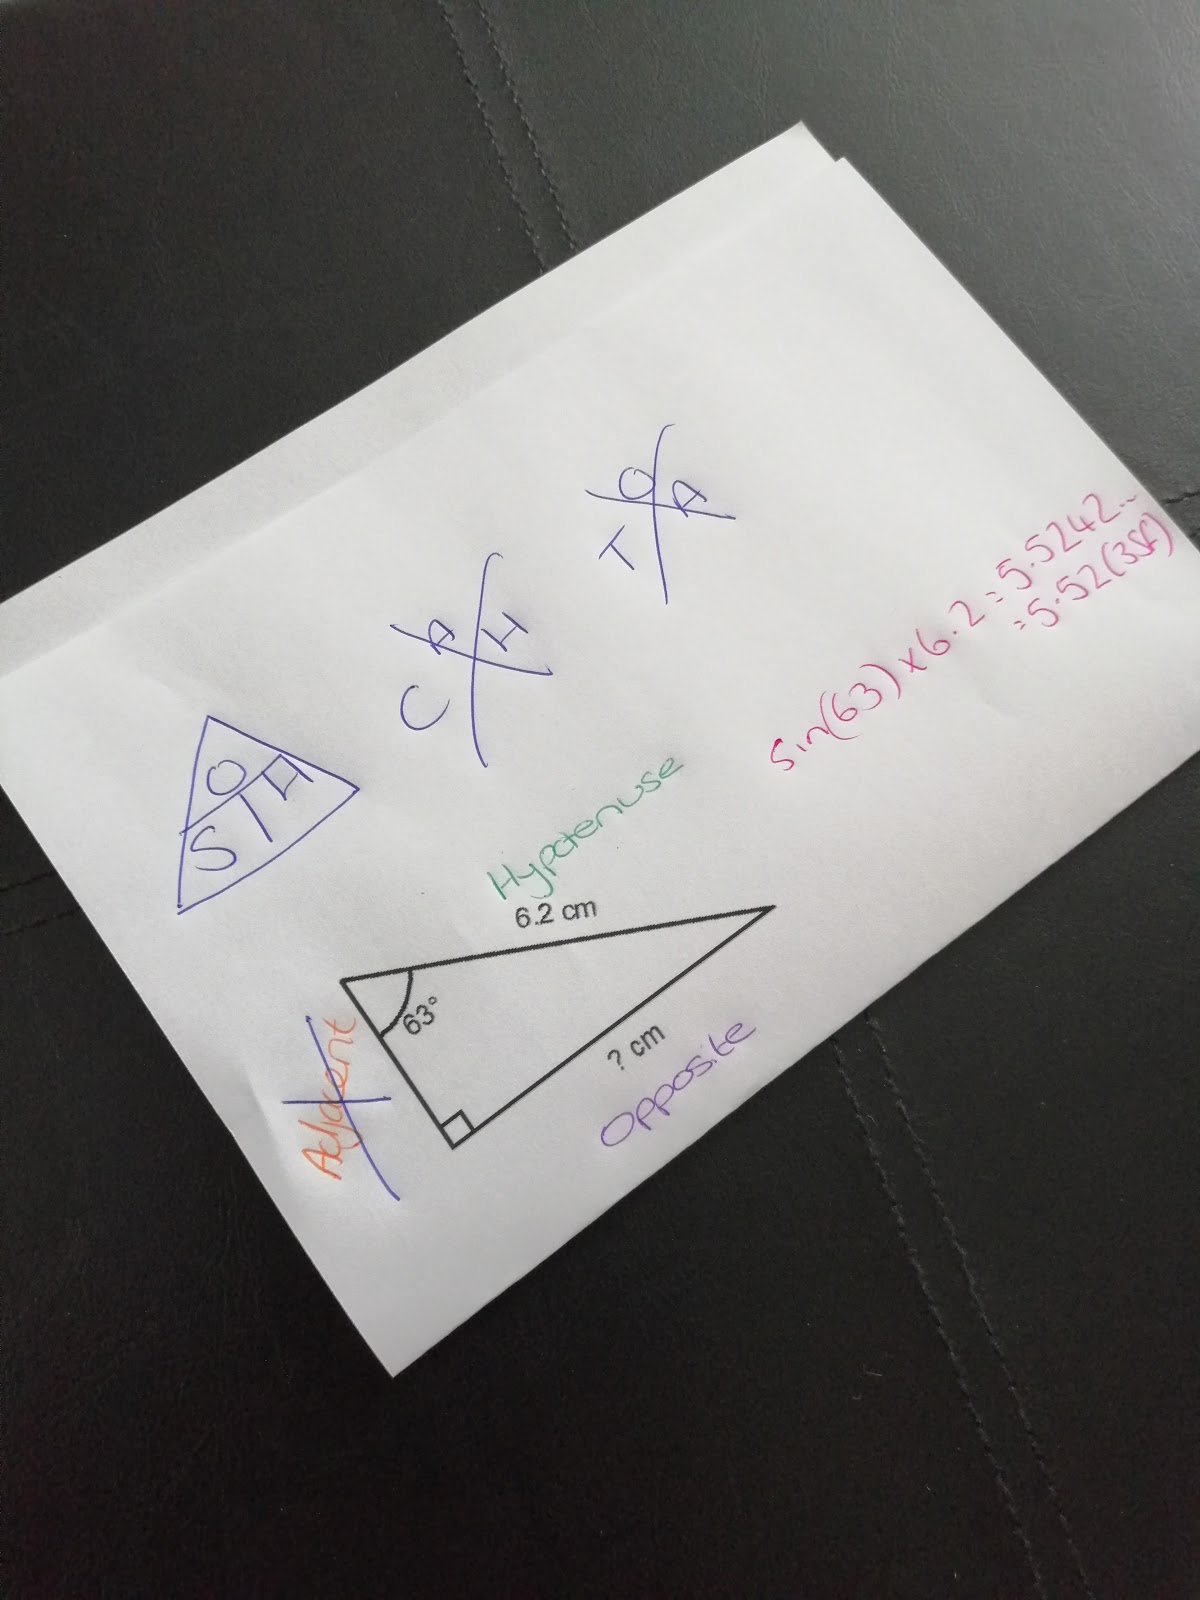 O
S H
A
C H
O
T A
Hypotenuse
6.2 cm
63°
? cm
Adjacent
Opposite
sin(63)×6.2=5.5242...
=5.52(3SF)